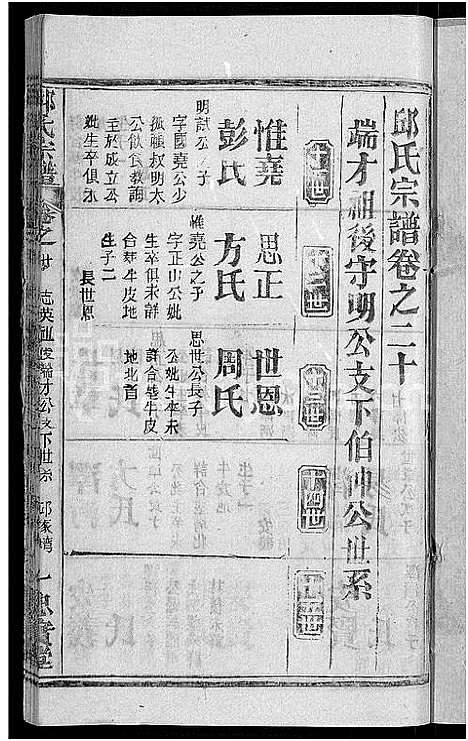 邱氏宗譜卷之二十
端才祖後守明公支下伯仲公世系
十三世
十四世
十五世
惟堯
彭氏
明試公之子
字國堯公少
孤賴叔明太
公飲食教誨
主於成立公
妣生卒俱水
思正
方氏
惟堯公之子
字正山公妣
生卒俱未詳
合葬牛皮地
生子二
長世恩
世恩
周氏
思世公長子
公妣生卒未
詳合葬牛皮
地北首
邱氏宗譜
卷之廿
志英祖後端才公支下世系
邱家灣
一忠實堂